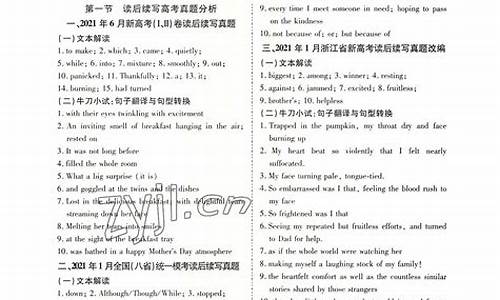 第一节 读后续写高考真题分析
一、2021年6月新高考(I,II)卷读后续写真题
(一)文本解读
1. to make; 2. which; 3. came; 4. quietly;
5. while; 6. into; 7. mixture; 8. smoothly; 9. out;
10. panicked; 11. Thankfully; 12. a; 13. it;
14. burning; 15. had turned
(二)牛刀小试:句子翻译与句型转换
1. with their eyes twinkling with excitement
2. An inviting smell of breakfast hanging in the air;
rested on
3. It was not long before
4. filled the whole room
5. What a big surprise (it is)
6. and goggled at the twins and the dishes
7. Lost in the delicious breakfast, with delightful tears
streaming down her face
8. Melting her tears into smiles
9. at the sight of the breakfast tray
10. was bathed in a happy Mother's Day atmosphere
二、2021年1月全国(八省)统一模考读后续写真题
(一)文本解读
1. down; 2. Although/Though/While; 3. stopped;
9. every time I meet someone in need; hoping to pass
on the kindness
10. not because of; or; but because of
三、2021年1月浙江省新高考读后续写真题改编
(一)文本解读
1. biggest; 2. among; 3. winner; 4. resting;
5. against; 6. jammed; 7. excited; 8. fruitless;
9. brother's; 10. helpless
(二)牛刀小试:句子翻译与句型转换
1. Trapped in the pumpkin, my throat dry and face
burning up
2. My heart beat so violently that I felt nearly
suffocated.
3. My face turning pale, tongue-tied.
4. So embarrassed was I that, feeling the blood rush to
my face
5. So frightened was I that
6. Seeing my repeated but fruitless efforts, and turned
to Dad for help.
7. as if the whole world were watching her
8. making myself a laughing stock of my family!
9. the heartfelt comfort as well as the countless similar
stories shared by those strangers
zyjl.cn